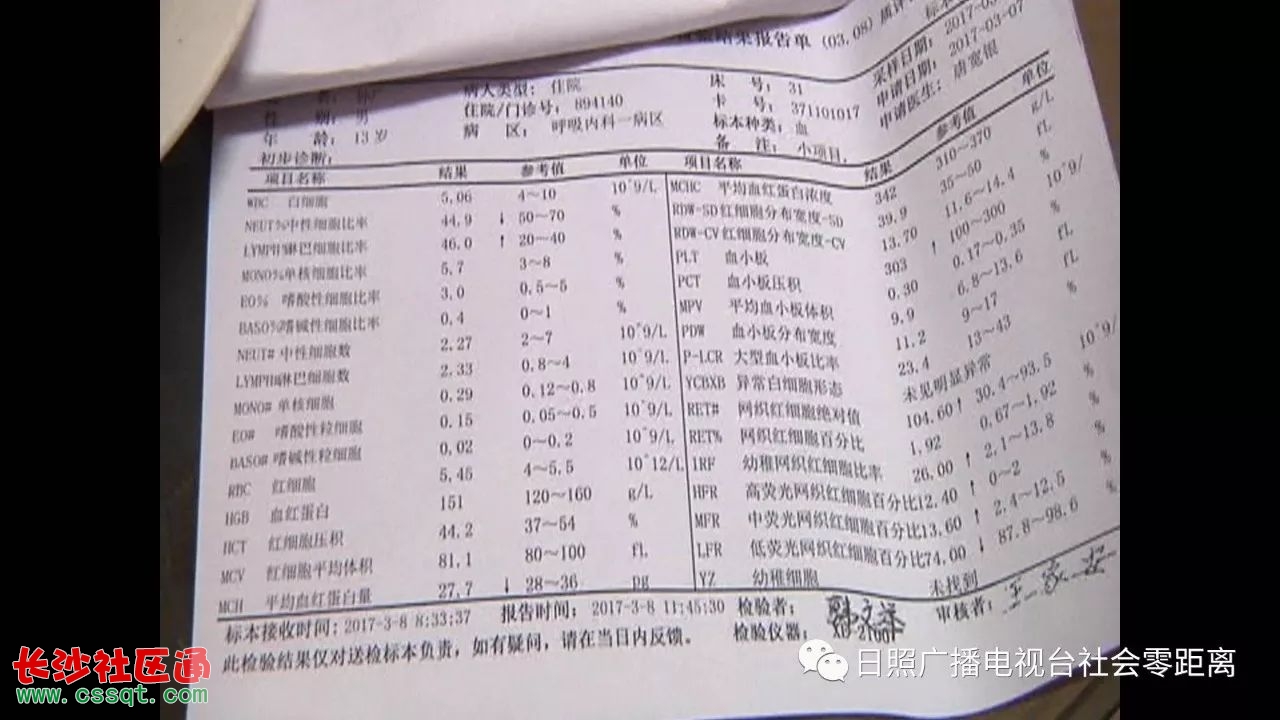 结果报告单 (03.08)
标本
采样日期: 2017-03-
申请日期: 2017-03-07
申请医生: 唐宽银
病人类型: 住院
住院/门诊号: 894140
病 区: 呼吸内科一病区
床 号: 31
卡 号: 371101017
标本种类: 血
备 注: 小项目,
性 别: 男
年 龄: 13岁
初步诊断:
项目名称 结果 参考值 单位
WBC 白细胞 5.06 4~10 10^9/L
NEUT%中性细胞比率 44.9 ↓ 50~70 %
LYMPH%淋巴细胞比率 46.0 ↑ 20~40 %
MONO%单核细胞比率 5.7 3~8 %
EO% 嗜酸性细胞比率 3.0 0.5~5 %
BASO%嗜碱性细胞比率 0.4 0~1 %
NEUT# 中性细胞数 2.27 2~7 10^9/L
LYMPH#淋巴细胞数 2.33 0.8~4 10^9/L
MONO# 单核细胞 0.29 0.12~0.8 10^9/L
EO# 嗜酸性粒细胞 0.15 0.05~0.5 10^9/L
BASO# 嗜碱性粒细胞 0.02 0~0.2 10^9/L
RBC 红细胞 5.45 4~5.5 10^12/L
HGB 血红蛋白 151 120~160 g/L
HCT 红细胞压积 44.2 37~54 %
MCV 红细胞平均体积 81.1 80~100 fL
MCH 平均血红蛋白量 27.7 ↓ 28~36 pg
项目名称 结果 参考值 单位
MCHC 平均血红蛋白浓度 342 310~370 g/L
RDW-SD红细胞分布宽度-SD 39.9 35~50 fL
RDW-CV红细胞分布宽度-CV 13.70 11.6~14.4 %
PLT 血小板 303 ↑ 100~300 10^9/
PCT 血小板压积 0.30 0.17~0.35
MPV 平均血小板体积 9.9 6.8~13.6 fL
PDW 血小板分布宽度 11.2 9~17 fL
P-LCR 大型血小板比率 23.4 13~43 %
YCBXB 异常白细胞形态 未见明显异常
RET# 网织红细胞绝对值 104.60↑ 30.4~93.5 10^9/
RET% 网织红细胞百分比 1.92 0.67~1.92 %
IRF 幼稚网织红细胞比率 26.00 ↑ 2.1~13.8 %
HFR 高荧光网织红细胞百分比12.40 ↑ 0~2 %
MFR 中荧光网织红细胞百分比13.60 ↑ 2.4~12.5 %
LFR 低荧光网织红细胞百分比74.00 ↓ 87.8~98.6 %
YZ 幼稚细胞 未找到
标本接收时间: 2017-3-8 8:33:37 报告时间: 2017-3-8 11:45:30 检验者: 审核者:
此检验结果仅对送检标本负责, 如有疑问, 请在当日内反馈。 检验仪器:
长沙社区通
www.cssqt.com
日照广播电视台社会零距离